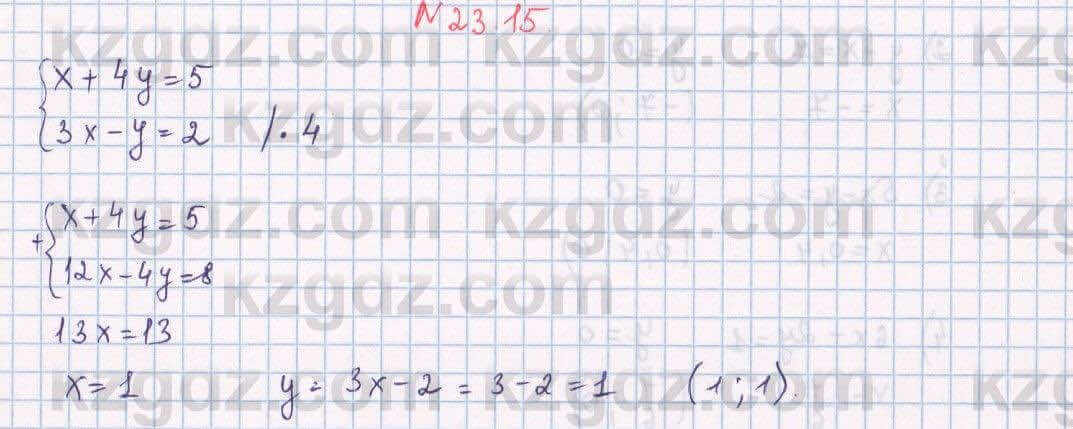 N 23.15.
kzgdz.com kzgdz.com kzg
{x + 4y = 5
{3x - y = 2 /· 4
kzgdz.com
+{x + 4y = 5
kzgdz.com kzgdz.com kzg
{12x - 4y = 8
kzgdz.com
13x = 13
x = 1 y = 3x - 2 = 3 - 2 = 1 (1; 1).
kzgdz.com kzgdz.com kzg